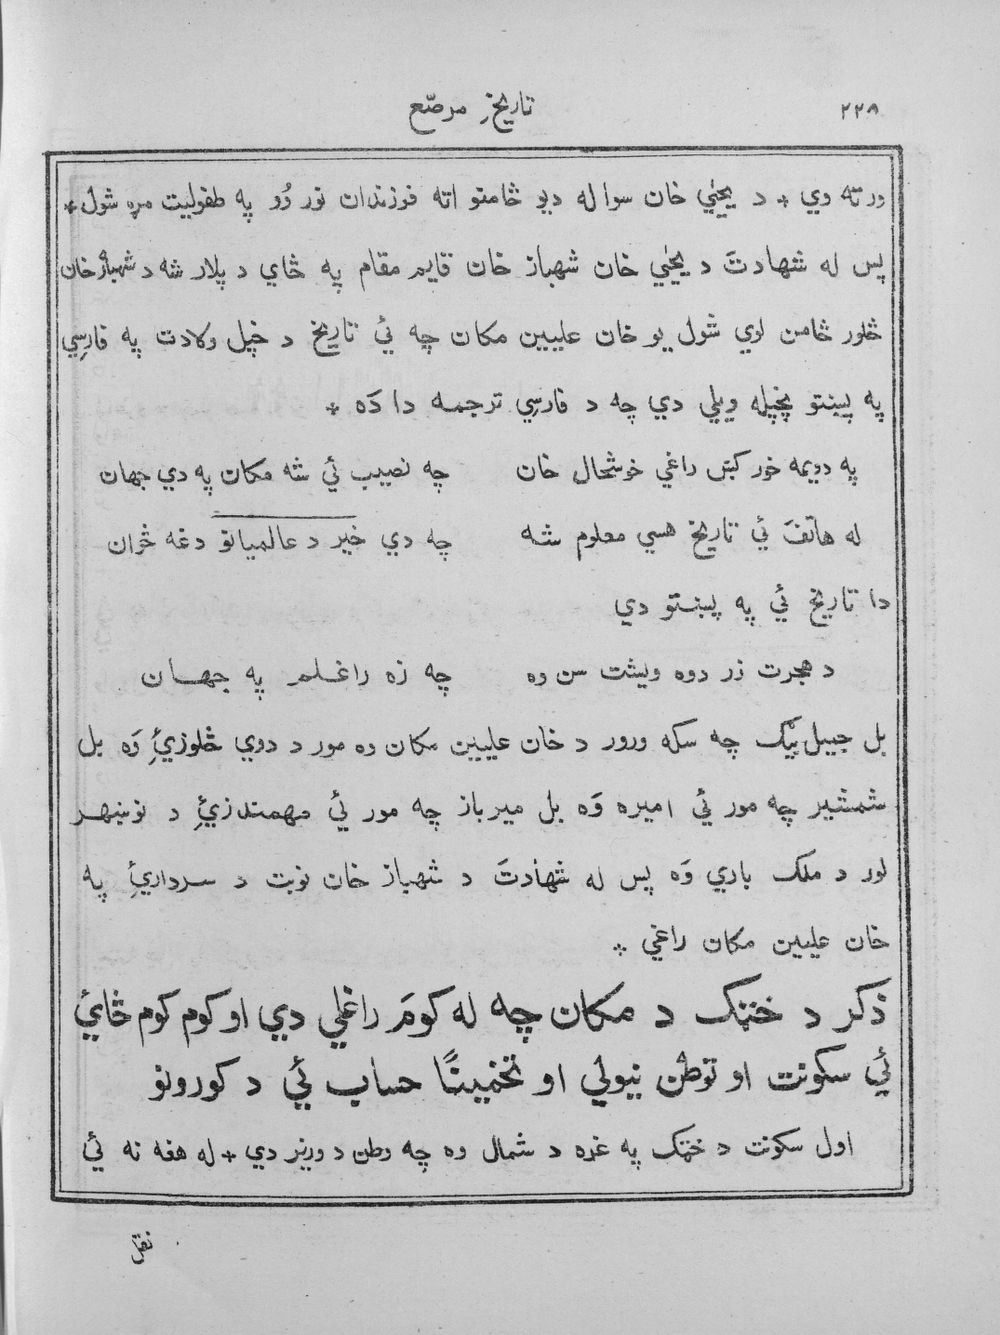 تاریخِ مرصّع
۲۲۸
ورته وي * د یحیٰي خان سوا له دیو څامنو اته فرزندان نور وُو په طفولیت مره شول *
پس له شهادتَ د یحیٰي خان شهباز خان قایم مقام په څاي د پلار شه د شهباز خان
څلور څامن لوي شول یو خان علیین مکان چه ئي تاریخ د خپل ولادت په فارسِي
په پښتو پخپله ویلي دي چه د فارسِي ترجمه دا دَه *
په دویمه خور کښ راغي خوشحال خان چه نصیب ئي شه مکان په دي جهان
له هاتفَ ئي تاریخ هسي معلوم شه چه دي خیر د عالمیانو دغه څوان
دا تاریخ ئي په پښتو دي
د هجرت زر دوه ویشت سن وه چه زه راغلم په جهان
بل جمیل بیګ چه سکه ورور د خان علیین مکان وه مور د دوي څلوزئِ وَه بل
شمشیر چه مور ئي امیره وَه بل میر باز چه مور ئي مهمندزئِ د نوښهر
لور د ملک باري وَه پس له شهادتَ د شهباز خان نوبت د سردارئِ په
خان علیین مکان راغي *
ذکر د خټک د مکان چه له کومَ راغلي دي او کوم کوم څائ
ئي سکونت او توطن نیولي او تخمینًا حساب ئي د کورونو
اول سکونت د خټک په غره د شمال وه چه وطن د وزیر دي * له هغه نه ئي
نقل